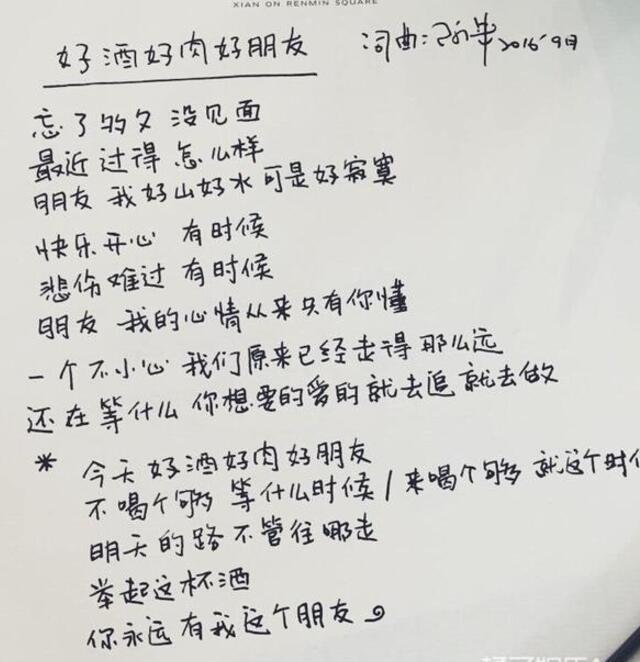 XIAN ON RENMIN SQUARE
好酒好肉好朋友 词曲: 2016 9月
忘了多久 没见面
最近 过得 怎么样
朋友 我好山好水 可是好寂寞
快乐开心 有时候
悲伤难过 有时候
朋友 我的心情从来只有你懂
一个不小心 我们原来已经走得那么远
还在等什么 你想要的爱的就去追 就去做
* 今天好酒好肉好朋友
不喝个够 等什么时候 / 来喝个够 就这个时候
明天的路不管往哪走
举起这杯酒
你永远有我这个朋友